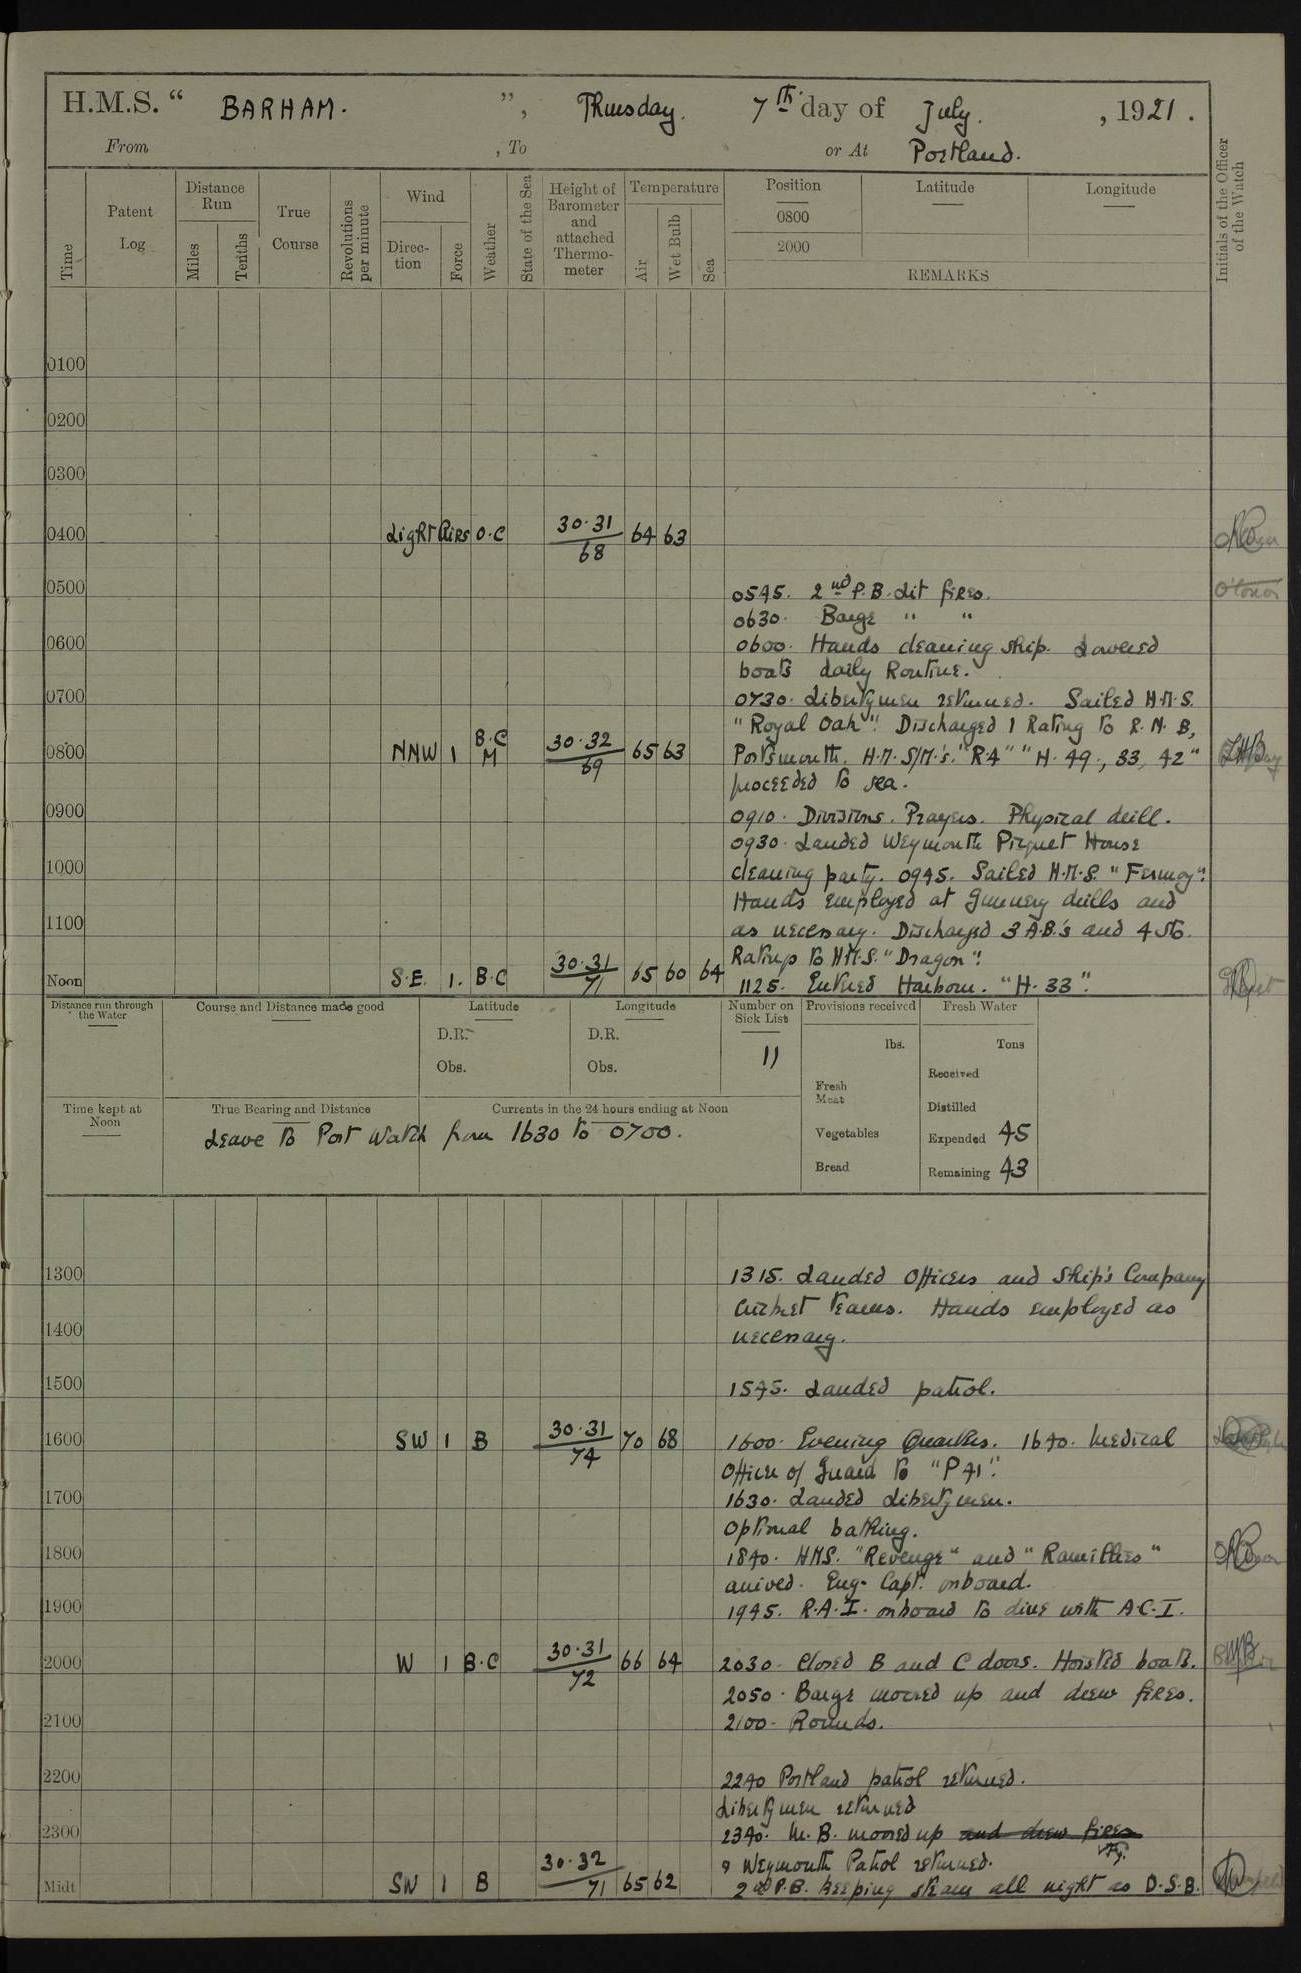 H.M.S. “ BARHAM. ”, Thursday. 7th day of July. , 1921 .
From , To or At Portland.
Time Patent Log Distance Run Miles Tenths True Course Revolutions per minute Wind Direc-tion Force Weather State of the Sea Height of Barometer and attached Thermo-meter Temperature Air Wet Bulb Sea Position 0800 2000 Latitude Longitude
REMARKS
Initials of the Officer of the Watch
0100
0200
0300
0400 Light Airs O.C 30.31/68 64 63
0500
0545. 2nd P.B. Lit fires.
0630. Barge " "
0600 0600. Hands cleaning ship. Lowered
boats daily Routine.
0700 0730. Libertymen returned. Sailed H.M.S.
"Royal Oak". Discharged 1 Rating to R.N.B,
0800 NNW 1 B.C M 30.32/69 65 63 Portsmouth. H.M. S/M's. "R.4" "H. 49, 33, 42"
proceeded to sea.
0900 0910. Divisions. Prayers. Physical drill.
0930. Landed Weymouth Picquet House
1000 cleaning party. 0945. Sailed H.M.S. "Fermoy".
Hands employed at Gunnery drills and
1100 as necessary. Discharged 3 A.B.'s and 4 Sto.
Ratings to H.M.S. "Dragon".
Noon S.E. 1. B.C 30.31/71 65 60 64 1125. Entered Harbour. "H. 33".
Distance run through the Water Course and Distance made good Latitude Longitude Number on Sick List Provisions received Fresh Water
D.R. D.R. 11 lbs. Tons
Obs. Obs. Received
Fresh Meat
Time kept at Noon True Bearing and Distance Currents in the 24 hours ending at Noon Distilled
Leave to Port Watch from 1630 to 0700. Vegetables Expended 45
Bread Remaining 43
1300 1315. Landed Officers and Ship's Company
Cricket teams. Hands employed as
1400 necessary.
1500 1545. Landed patrol.
1600 SW 1 B 30.31/74 70 68 1600. Evening Quarters. 1640. Medical
Officer of Guard to "P 41".
1700 1630. Landed Libertymen.
Optional bathing.
1800 1840. HMS. "Revenge" and "Ramillies"
arrived. Eng. Capt. onboard.
1900 1945. R.A.I. onboard to dine with A.C.I.
2000 W 1 B.C 30.31/72 66 64 2030. Closed B and C doors. Hoisted boats.
2050. Barge moored up and drew fires.
2100 2100. Rounds.
2200 2240 Portland patrol returned.
Libertymen returned
2300 2340. M.B. moored up and drew fires
& Weymouth Patrol returned.
Midt SW 1 B 30.32/71 65 62 2nd P.B. keeping steam all night as D.S.B.